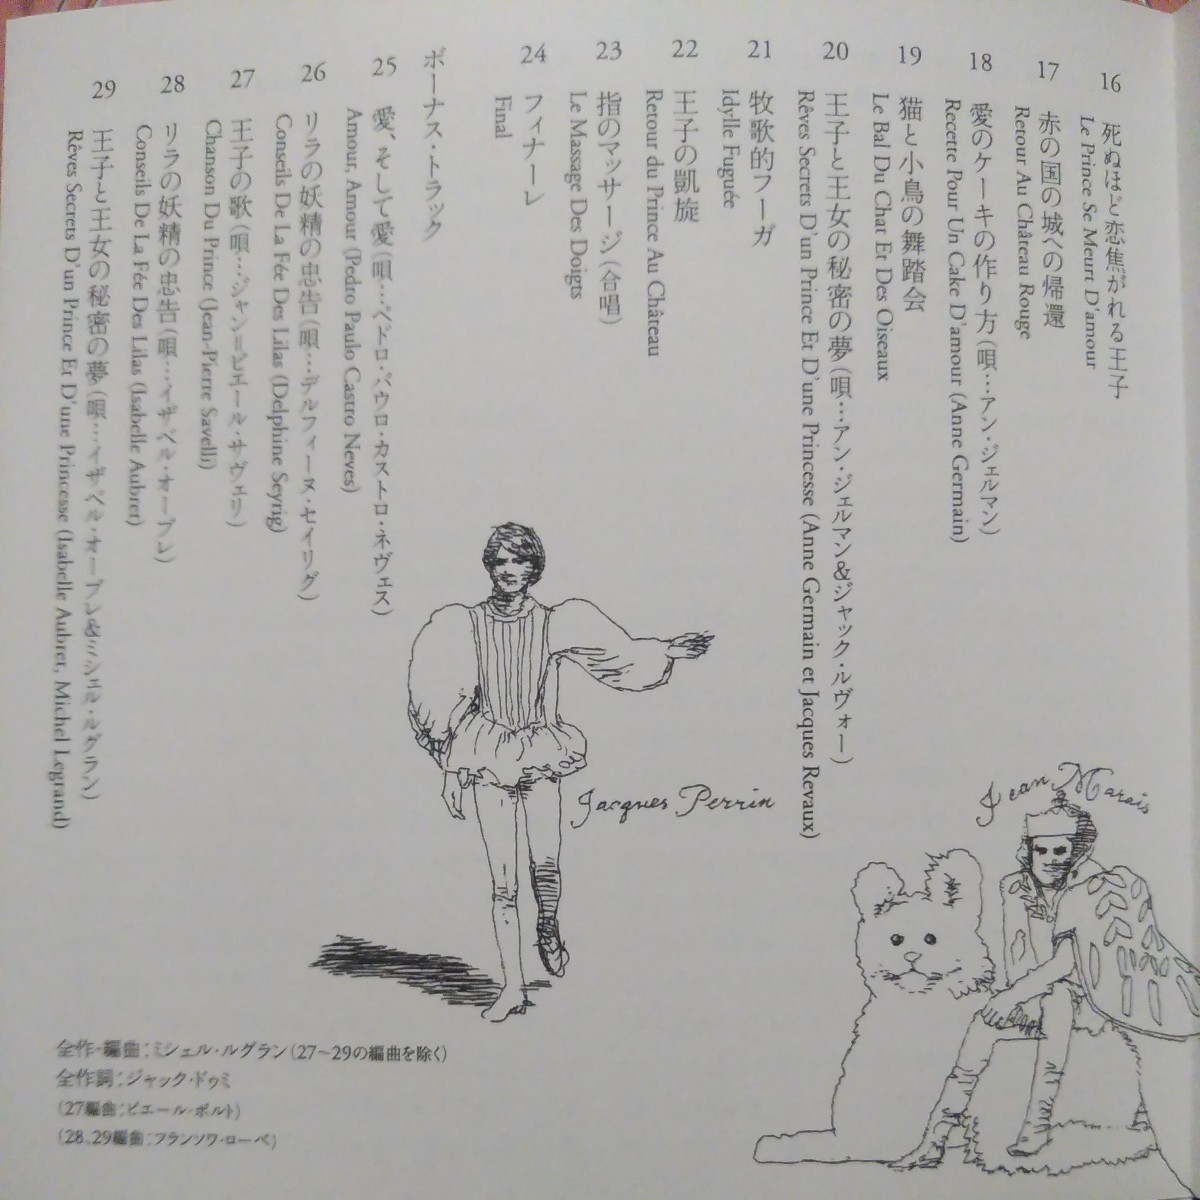 16
死ぬほど恋焦がれる王子
Le Prince Se Meurt D'amour
17
赤の国の城への帰還
Retour Au Château Rouge
18
愛のケーキの作り方(唄…アン・ジェルマン)
Recette Pour Un Cake D'amour (Anne Germain)
19
猫と小鳥の舞踏会
Le Bal Du Chat Et Des Oiseaux
20
王子と王女の秘密の夢(唄…アン・ジェルマン&ジャック・ルヴォー)
Rêves Secrets D'un Prince Et D'une Princesse (Anne Germain et Jacques Revaux)
21
牧歌的フーガ
Idylle Fuguée
22
王子の凱旋
Retour du Prince Au Château
23
指のマッサージ(合唱)
Le Massage Des Doigts
24
フィナーレ
Final
ボーナス・トラック
25
愛、そして愛(唄…ペドロ・パウロ・カストロ・ネヴェス)
Amour, Amour (Pedro Paulo Castro Neves)
26
リラの妖精の忠告(唄…デルフィーヌ・セイリグ)
Conseils De La Fée Des Lilas (Delphine Seyrig)
27
王子の歌(唄…ジャン=ピエール・サヴェリ)
Chanson Du Prince (Jean-Pierre Savelli)
28
リラの妖精の忠告(唄…イザベル・オーブレ)
Conseils De La Fée Des Lilas (Isabelle Aubret)
29
王子と王女の秘密の夢(唄…イザベル・オーブレ&ミシェル・ルグラン)
Rêves Secrets D'un Prince Et D'une Princesse (Isabelle Aubret, Michel Legrand)
Jacques Perrin
Jean Marais
全作・編曲:ミシェル・ルグラン(27~29の編曲を除く)
全作詞:ジャック・ドゥミ
(27編曲:ピエール・ポルト)
(28、29編曲:フランソワ・ローベ)